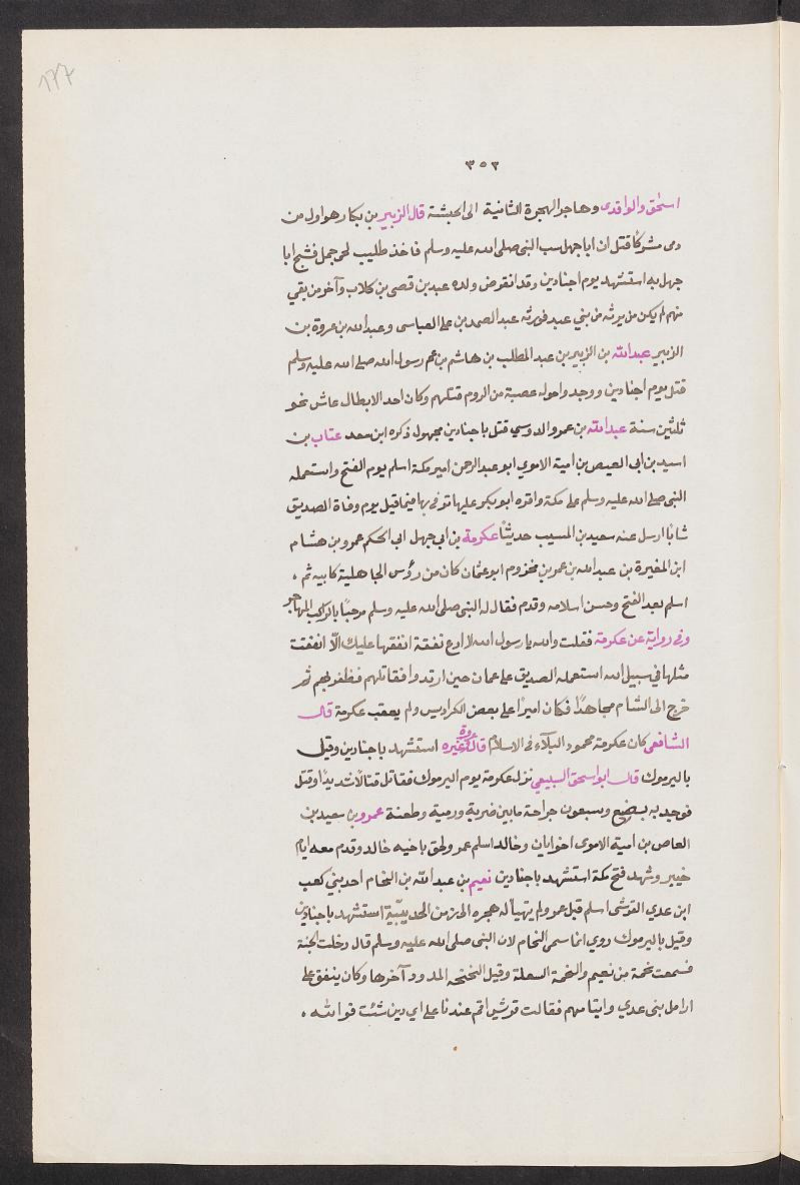 177
٣٥٢
اسحٰق والواقدى وهاجر الهجرة الثانية الى الحبشة قال الزبير بن بكار هو اول من
دمى مشركًا قتل ان ابا جهل سب النبى صلى الله عليه وسلم فاخذ طليب لحى جمل فشج ابا
جهل به استشهد يوم اجنادين وقد انقرض ولده عبد بن قصى بن كلاب وآخر من بقي
منهم لم يكن من يرثه من بني عبد فورثه عبد الصمد بن على العباسى وعبد الله بن عروة بن
الزبير عبدالله بن الزبير بن عبد المطلب بن هاشم بن عم رسول الله صلى الله عليه وسلم
قتل يوم اجنادين ووجد واحوله عصبة من الروم قتلهم وكان احد الابطال عاش نحو
ثلثين سنة عبدالله بن عمرو الدوسي قتل باجنادين مجهول ذكره ابن سعد عتاب بن
اسيد بن ابى العيص بن امية الاموي ابو عبد الرحمن امير مكة اسلم يوم الفتح واستعمله
النبى صلى الله عليه وسلم على مكة واقره ابو بكر عليها توفى بها فيما قيل يوم وفاة الصديق
شابًا ارسل عنه سعيد بن المسيب حديثًا عكرمة بن ابي جهل ابى الحكم عمرو بن هشام
ابن المغيرة بن عبد الله بن عمر بن مخزوم ابو عثمان كان من رؤس الجاهلية كابيه ثم .
اسلم بعد الفتح وحسن اسلامه وقدم فقال له النبى صلى الله عليه وسلم مرحبًا بالراكب المهاجر
وفى رواية عن عكرمة فقلت والله يا رسول الله لا ادع نفقة انفقها عليك الّا انفقت
مثلها في سبيل الله استعمله الصديق على عمان حين ارتدوا فقاتلهم فظفر بهم ثم
خرج الى الشام مجاهدًا فكان اميرًا على بعض الكراديس ولم يعقب عكرمة قال
الشافعى كان عكرمة محمود البلآء فى الاسلام قال عروة وغيره استشهد باجنادين وقيل
باليرموك قال ابو اسحق السبيعى نزل عكرمة يوم اليرموك فقاتل قتالًا شديدًا وقتل
فوجد به بضع وسبعون جراحة ما بين ضربة ورمية وطعنة عمرو بن سعيد بن
العاص بن امية الاموى اخو ابان وخالد اسلم عمر ولحق باخيه خالد وقدم معه ايام
خيبر وشهد فتح مكة استشهد باجنادين نعيم بن عبد الله بن النحام احد بني كعب
ابن عدي القرشى اسلم قبل عمر ولم يتهيأ له هجره الا زمن الحديبية استشهد باجنادين
وقيل باليرموك روي انما سمى النحام لان النبى صلى الله عليه وسلم قال دخلت الجنة
فسمعت نحمة من نعيم والنحمة السعلة وقيل النحنحه المدود آخرها وكان ينفق على
ارامل بنى عدي وايتامهم فقالت قريش اقم عندنا على اي دين شئت فوالله .